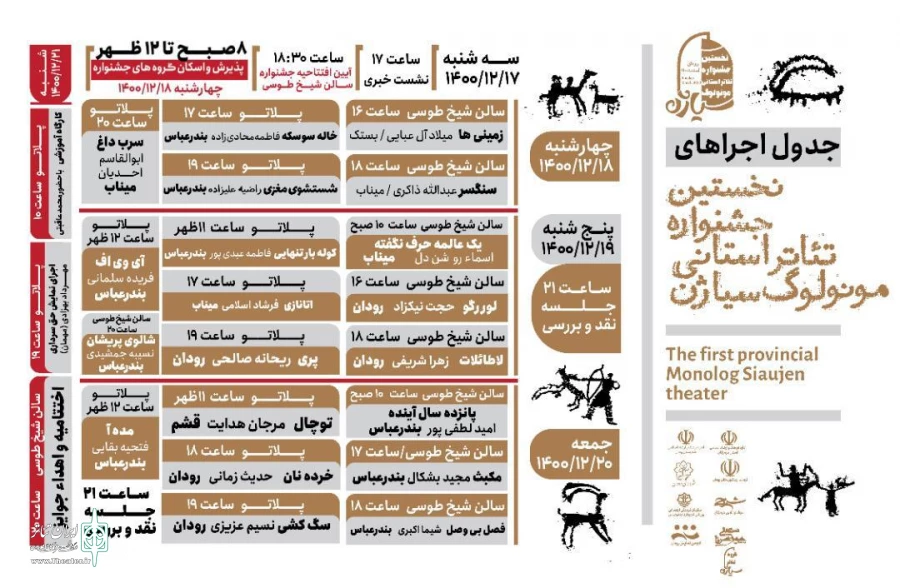 نخستین
جشنواره
تئاتر استانی
مونولوگ
سیاژن
جدول اجراهای
نخستین
جشنواره
تئاتر استانی
مونولوگ سیاژن
The first provincial
Monolog Siaujen
theater
سه شنبه
۱۴۰۰/۱۲/۱۷
ساعت ۱۷
نشست خبری
ساعت ۱۸:۳۰
آیین افتتاحیه جشنواره
سالن شیخ طوسی
۸ صبح تا ۱۲ ظهر
پذیرش و اسکان گروه های جشنواره
چهارشنبه ۱۴۰۰/۱۲/۱۸
چهارشنبه
۱۴۰۰/۱۲/۱۸
سالن شیخ طوسی ساعت ۱۶
زمینی ها میلاد آل عبایی / بستک
پلاتو ساعت ۱۷
خاله سوسکه فاطمه محادی زاده بندرعباس
پلاتو
ساعت ۲۰
سرب داغ
ابوالقاسم
احدیان
میناب
سالن شیخ طوسی ساعت ۱۸
سنگسر عبدالله ذاکری / میناب
پلاتو ساعت ۱۹
شستشوی مغزی راضیه علیزاده بندرعباس
پنج شنبه
۱۴۰۰/۱۲/۱۹
ساعت ۲۱
جلسه
نقد و بررسی
سالن شیخ طوسی ساعت ۱۰ صبح
یک عالمه حرف نگفته
اسماء رو شن دل میناب
پلاتو ساعت ۱۱ ظهر
کوله بار تنهایی فاطمه عبدی پور بندرعباس
پلاتو
ساعت ۱۲ ظهر
آی وی اف
فریده سلمانی
بندرعباس
سالن شیخ طوسی ساعت ۱۶
لوررگو حجت نیکزاد رودان
پلاتو ساعت ۱۷
اتانازی فرشاد اسلامی میناب
سالن شیخ طوسی ساعت ۱۸
لاطائلات زهرا شریفی رودان
پلاتو ساعت ۱۹
پری ریحانه صالحی رودان
سالن شیخ طوسی
ساعت ۲۰
شالوی پریشان
نسیبه جمشیدی
بندرعباس
جمعه
۱۴۰۰/۱۲/۲۰
سالن شیخ طوسی ساعت ۱۰ صبح
پانزده سال آینده
امید لطفی پور بندرعباس
پلاتو ساعت ۱۱ ظهر
توچال مرجان هدایت قشم
پلاتو
ساعت ۱۲ ظهر
مده آ
فتحیه بقایی
بندرعباس
سالن شیخ طوسی / ساعت ۱۷
مکبث مجید بشکال بندرعباس
پلاتو ساعت ۱۸
خرده نان حدیث زمانی رودان
سالن شیخ طوسی ساعت ۱۸
فصل بی وصل شیما اکبری بندرعباس
پلاتو ساعت ۱۹
سگ کشی نسیم عزیزی رودان
ساعت ۲۱
جلسه
نقد و بررسی
شنبه
۱۴۰۰/۱۲/۲۱
پلاتو ساعت ۱۰
کارگاه آموزشی
باحضور محمد عاقبتی
پلاتو ساعت ۱۹
اجرای نمایش حق سرداری
مهرداد بهزادی (مهمان)
سالن شیخ طوسی ساعت ۲۰
اختتامیه و اهداء جوایز
ایران تئاتر
www.Theater.ir